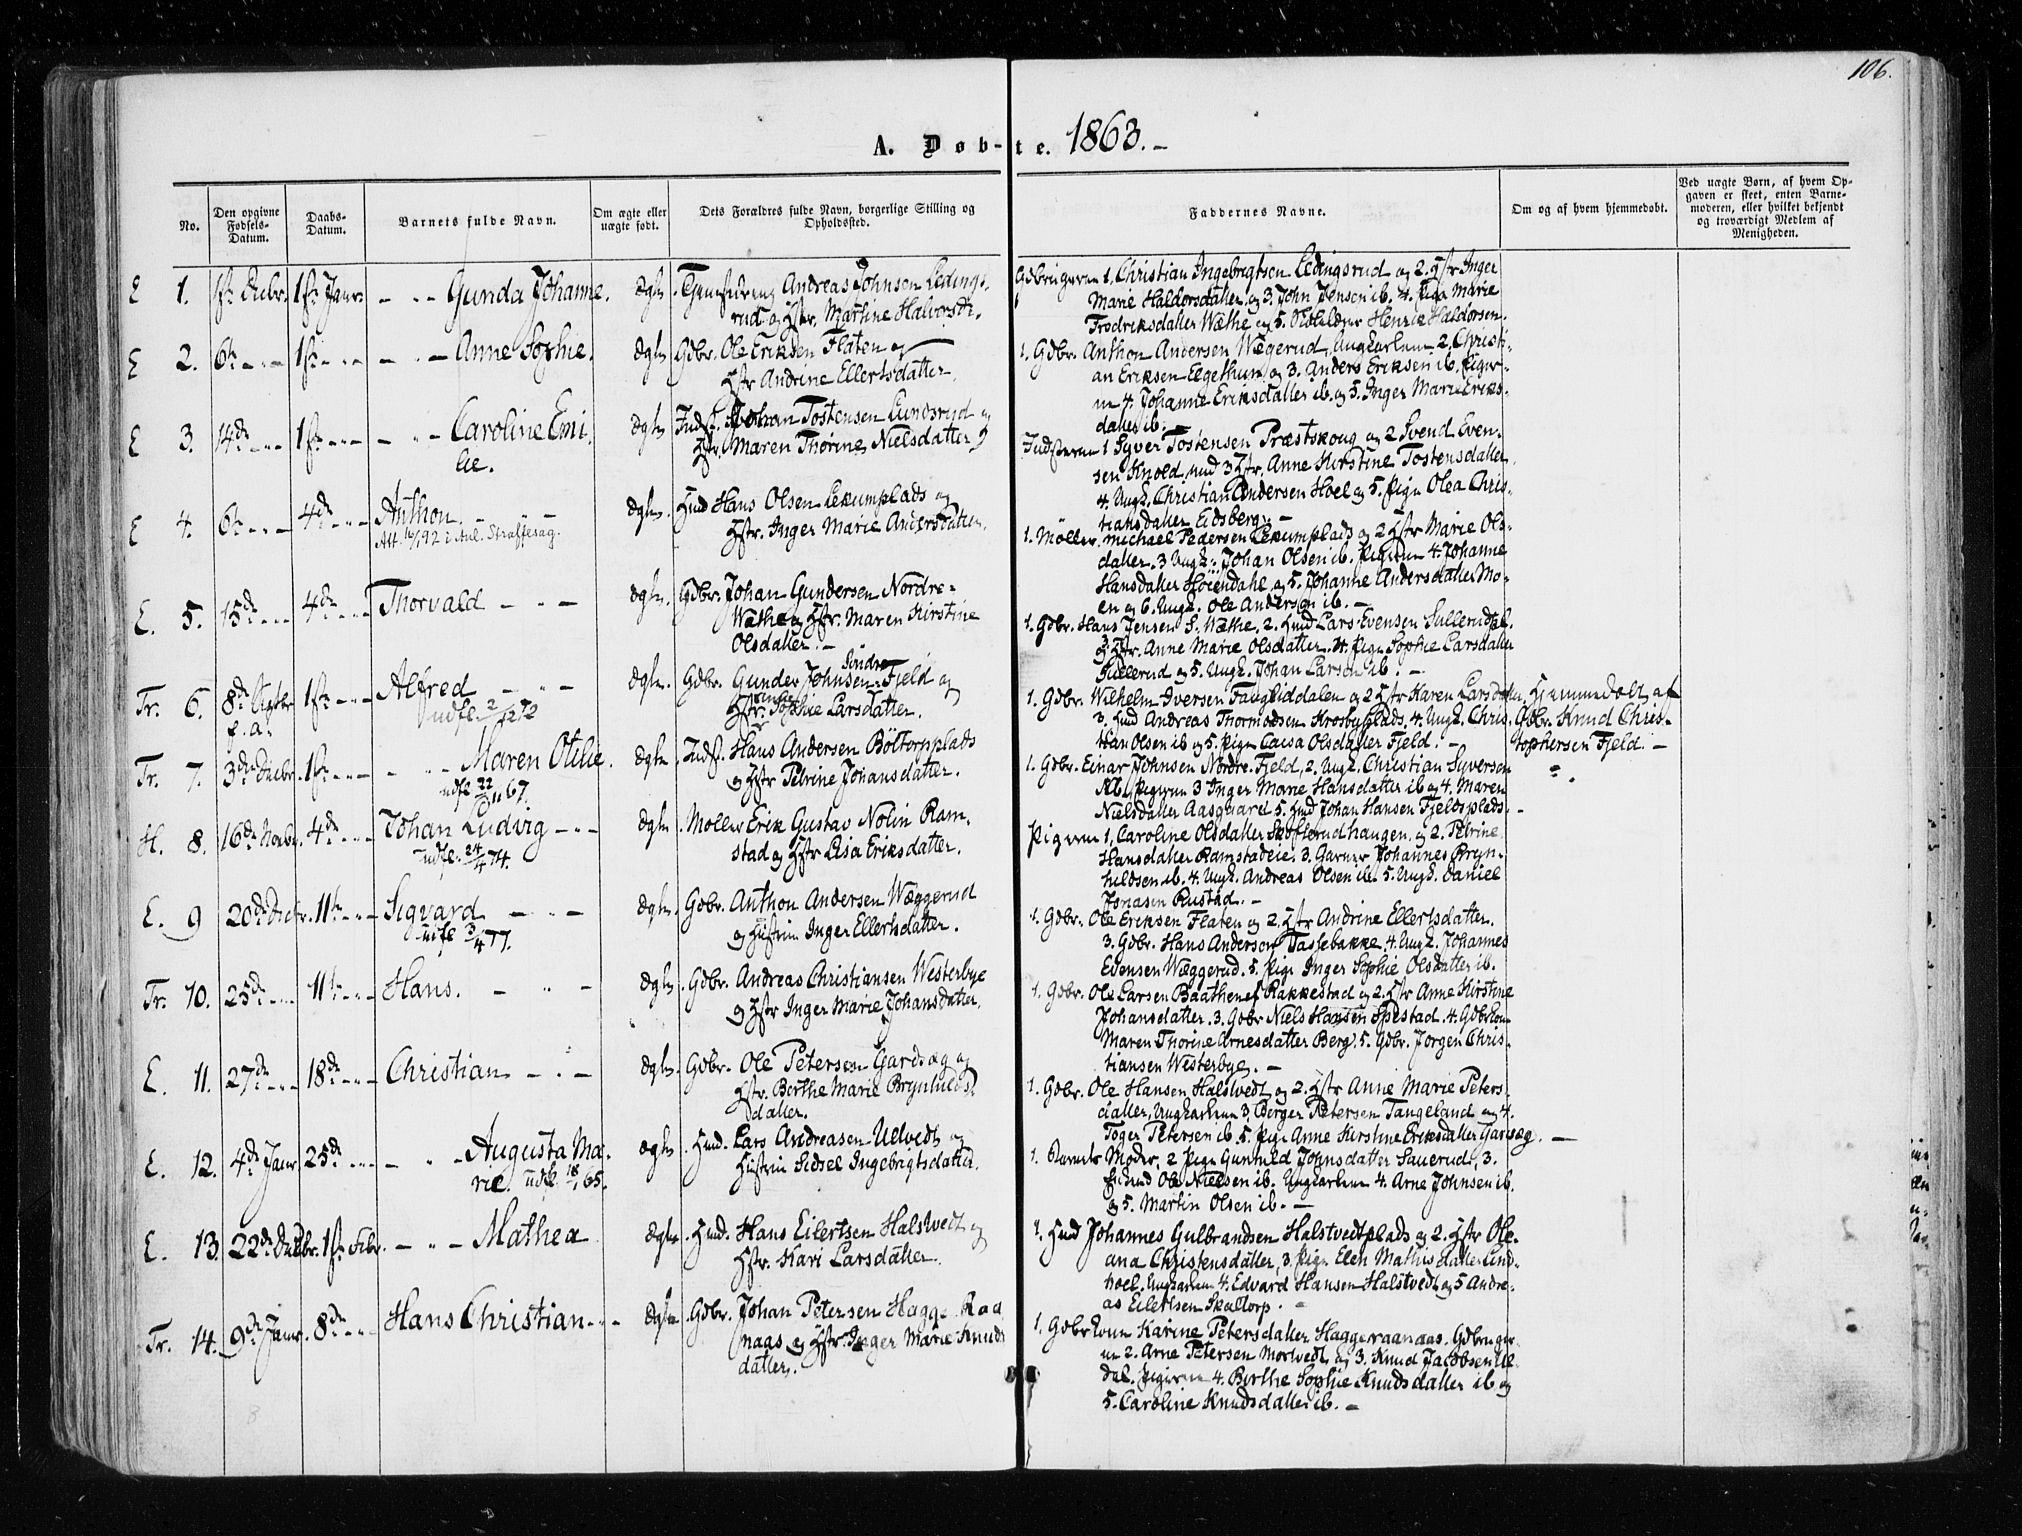 106.
A. Døb-te. 1863.-
No.
Den opgivne Fødsels-Datum.
Daabs-Datum.
Barnets fulde Navn.
Om ægte eller uægte født.
Dets Forældres fulde Navn, borgerlige Stilling og Opholdssted.
Faddernes Navne.
Om og af hvem hjemmedøbt.
Ved uægte Børn, af hvem Opgaven er skeet, enten Barnemoderen, eller hvilket bekjendt og troværdigt Medlem af Menigheden.
E 1. 1ste Decbr. 1ste Janr. Gunda Johanne. ægte Andreas Johnsen Ledings-
rud og Hstr. Martine Halvorsdr.
1. Christian Ingebrigtsen Ledingsrud og 2. Hstr Inger
Marie Haldorsdatter og 3. John Jensen ib. 4. Pige Marie
Fredriksdatter Wæthe og 5. Henrik Haldorsen.
E 2. 6te 1ste Anne Sophie. ægte Gdbr. Ole Eriksen Flaten og
Hstr Andrine Ellertsdatter.
1. Gdbr. Anthon Andersen Wægerud, Ungkarlene 2. Christi-
an Eriksen Elgethun og 3. Anders Eriksen ib. Piger-
ne 4. Johanne Eriksdatter ib. og 5. Inger Marie Eriks-
datter ib.
E 3. 14de 1ste Caroline Emi-
lie. ægte Inds. Johan Tostensen Lundsrud og
Hstr. Maren Thorine Nielsdatter
1 Syver Tostensen Præstskoug og 2 Svend Even-
sen Knold, med 3 Hstr. Anne Kirstine Tostensdatter.
4. Ungk. Christian Andersen Hoel og 5. Pige Olea Chris-
tiansdatter Eidsberg.
E 4. 6te 4de Anthon.
Att. 16/1 92 i Anl. Straffesag.
ægte. Hmd Hans Olsen Lekumplads og
Hstr. Inger Marie Andersdatter.
1. Møller Michael Pedersen Lekumplads og 2 Hstr Marie Ols-
datter. 3 Ungk. Johan Olsen ib. Pigerne 4. Johanne
Hansdatter Høiendahl og 5. Johanne Andersdatter Mo-
en og 6. Ungk. Ole Andersen ib.
E. 5. 15de 4de Thorvald ægte. Gdbr. Johan Gundersen Nordre-
Wæthe og Hstr. Maren Kirstine
Olsdatter.
1. Gdbr. Hans Jensen S. Wæthe, 2. Hmd Lars Evensen Sullerud
og 3 Hstr. Anne Marie Olsdatter. 4. Pige Sophie Larsdatter
Sullerud og 5. Ungk. Johan Larsen ib.
Tr. 6. 8de Septbr f. a. 1ste Alfred
udfl. 2/12 72
ægte. Gdbr. Gunder Johnsen Søndre Fjeld og
Hstr. Sophie Larsdatter.
1. Gdbr. Wilhelm Iversen Taugliddalen og 2 Hstr Karen Larsdatter.
3. Hmd Andreas Thormodsen Krosbyplads. 4. Ungk. Chris-
tian Olsen ib og 5. Pige Caisa Olsdatter Fjeld.
Hjemmedøbt af
Gdbr. Knud Chris-
tophersen Fjeld.
Tr. 7. 3de Decbr. 1ste Maren Otilie.
ægte Inds. Hans Andersen Böltorpplads
og Hstr Petrine Johansdatter.
1. Gdbr. Einar Johnsen Nordre Fjeld, 2. Ungk. Christian Syversen
ib. Pigerne 3 Inger Marie Hansdatter ib og 4. Maren
Nielsdatter Aasgaard 5. Hmd Johan Hansen Fjeldsplads.
H. 8. 16de Novbr. 4de Johan Ludvig
udfl. 24/4 74.
ægte Møller Erik Gustav Nolin Ram-
stad og Hstr Lisa Eriksdatter.
Pigerne 1. Caroline Olsdatter Skofterudhaugen og 2. Petrine
Hansdatter Ramstadeie. 3. Garver Johannes Bryn-
hildsen ib. 4. Ungk. Andreas Olsen ib. 5. Ungk. Daniel
Jonasen Rustad.
E. 9 20de Decbr. 11te Sigvard
udfl 3/4 77.
ægte. Gdbr. Anthon Andersen Wæggerud
og Hustru Inger Ellertsdatter.
1. Gdbr. Ole Eriksen Flaten og 2. Hstr Andrine Ellertsdatter.
3. Gdbr. Hans Andersen Tassebakke. 4. Ungk. Johannes
Evensen Wæggerud. 5. Pige Inger Sophie Olsdatter ib.
Tr. 10. 25de 11te Hans. ægte. Gdbr. Andreas Christiansen Westerbye
og Hstr Inger Marie Johansdatter.
1. Gdbr. Ole Larsen Baathenef Rakkestad og 2. Hstr Anne Kirstine
Johansdatter. 3. Gdbr Niels Hansen Spestad. 4. Gdbrkone
Maren Thorine Arnesdatter Berg, 5. Gdbr. Jørgen Chris-
tiansen Westerbye.
E. 11. 27de 18de Christian ægte. Gdbr. Ole Petersen Gardsæg og
Hstr. Berthe Marie Brynhilds-
datter.
1. Gdbr. Ole Hansen Halstvedt og 2. Hstr Anne Marie Peters-
datter, Ungkarlene 3. Berger Petersen Tangeland og 4.
Toger Petersen ib. 5. Pige Anne Kirstine Eriksdatter Gardsæg.
E. 12. 4de Janr. 25de Augusta Ma-
rie. udfl. 18/1 65.
ægte Hmd. Lars Andreasen Ulvedt og
Hustru Sidsel Ingebrigtsdatter.
1. Barnets Moder, 2 Pige Gunhild Johnsdatter Sauerud, 3.
Ole Nielsen ib. Ungkarlene 4. Arne Johnsen ib.
og 5. Martin Olsen ib.
E. 13. 22de Decbr. 1ste Febr. Mathea ægte Hmd. Hans Eilertsen Halstvedt og
Hstr. Kari Larsdatter.
1. Hmd Johannes Gulbrandsen Halstvedtplads og 2. Hstr Ole-
ana Christensdatter, 3. Pige Elen Mathisdatter Lind-
hoel. Ungkarlene 4. Edvard Hansen Halstvedt og 5 Andre-
as Eilertsen Skaltorp.
Tr. 14. 9de Janr. 8de Hans Christian ægte Gdbr. Johan Petersen Hagge Raa
naas og Hstr. Inger Marie Knuds
datter.
1. Gdbrkone Karine Petersdatter Haggeraanaas. Gdbruger-
ne 2. Arne Petersen Morvedt og 3. Knud Jacobsen Ul-
dal. Pigerne 4. Berthe Sophie Knudsdatter ib og
5. Caroline Knudsdatter ib.